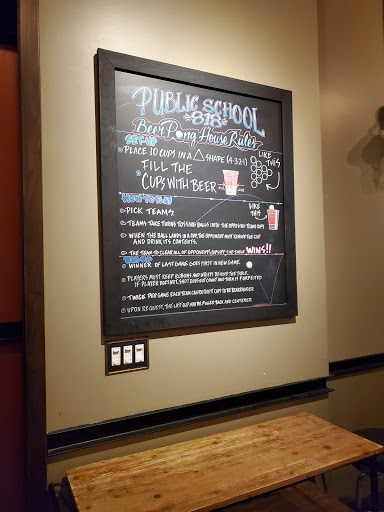 PUBLIC SCHOOL
818
Beer Pong House Rules
SET UP
PLACE 10 CUPS IN A △ SHAPE (4-3-2-1)
LIKE THIS
FILL THE
CUPS WITH BEER
HOW TO PLAY
LIKE THIS
PICK TEAMS
TEAMS TAKE TURNS TOSSING BALLS INTO THE OPPOSING TEAMS CUPS
WHEN THE BALL LANDS IN A CUP, THE OPPONENT MUST REMOVE THAT CUP
AND DRINK ITS CONTENTS.
THE TEAM TO CLEAR ALL OF OPPONENTS CUPS OFF THE TABLE WINS!!
RULES
WINNER OF LAST GAME GOES FIRST IN NEW GAME.
PLAYERS MUST KEEP ELBOWS AND WRISTS BEHIND THE TABLE.
IF PLAYER DOES NOT, SHOT DOES NOT COUNT AND TURN IS FORFEITED
TWICE PER GAME EACH TEAM CAN REQUEST CUPS TO BE REARRANGED
UPON REQUEST, THE LAST CUP MAY BE PULLED BACK AND CENTERED.